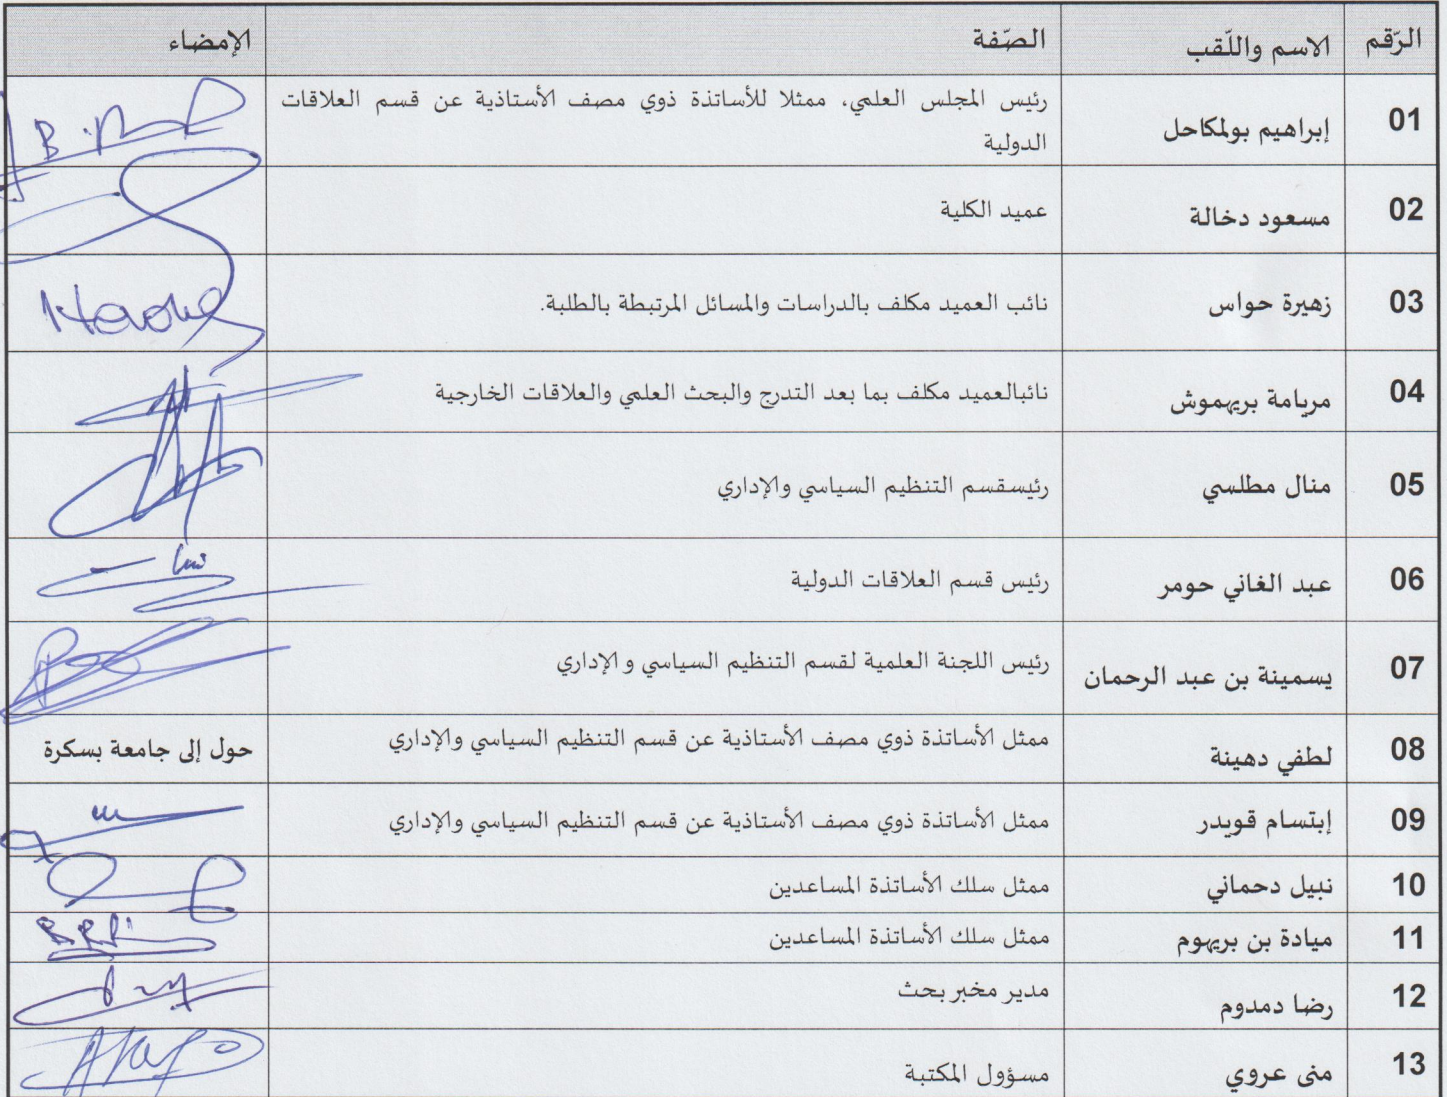 الرّقم الاسم واللّقب الصّفة الإمضاء
01 إبراهيم بولمكاحل رئيس المجلس العلمي، ممثلا للأساتذة ذوي مصف الأستاذية عن قسم العلاقات
الدولية
02 مسعود دخالة عميد الكلية
03 زهيرة حواس نائب العميد مكلف بالدراسات والمسائل المرتبطة بالطلبة.
04 مريامة بريهموش نائبالعميد مكلف بما بعد التدرج والبحث العلمي والعلاقات الخارجية
05 منال مطلسي رئيسقسم التنظيم السياسي والإداري
06 عبد الغاني حومر رئيس قسم العلاقات الدولية
07 يسمينة بن عبد الرحمان رئيس اللجنة العلمية لقسم التنظيم السياسي والإداري
08 لطفي دهينة ممثل الأساتذة ذوي مصف الأستاذية عن قسم التنظيم السياسي والإداري حول إلى جامعة بسكرة
09 إبتسام قويدر ممثل الأساتذة ذوي مصف الأستاذية عن قسم التنظيم السياسي والإداري
10 نبيل دحماني ممثل سلك الأساتذة المساعدين
11 ميادة بن بريهوم ممثل سلك الأساتذة المساعدين
12 رضا دمدوم مدير مخبر بحث
13 منى عروي مسؤول المكتبة